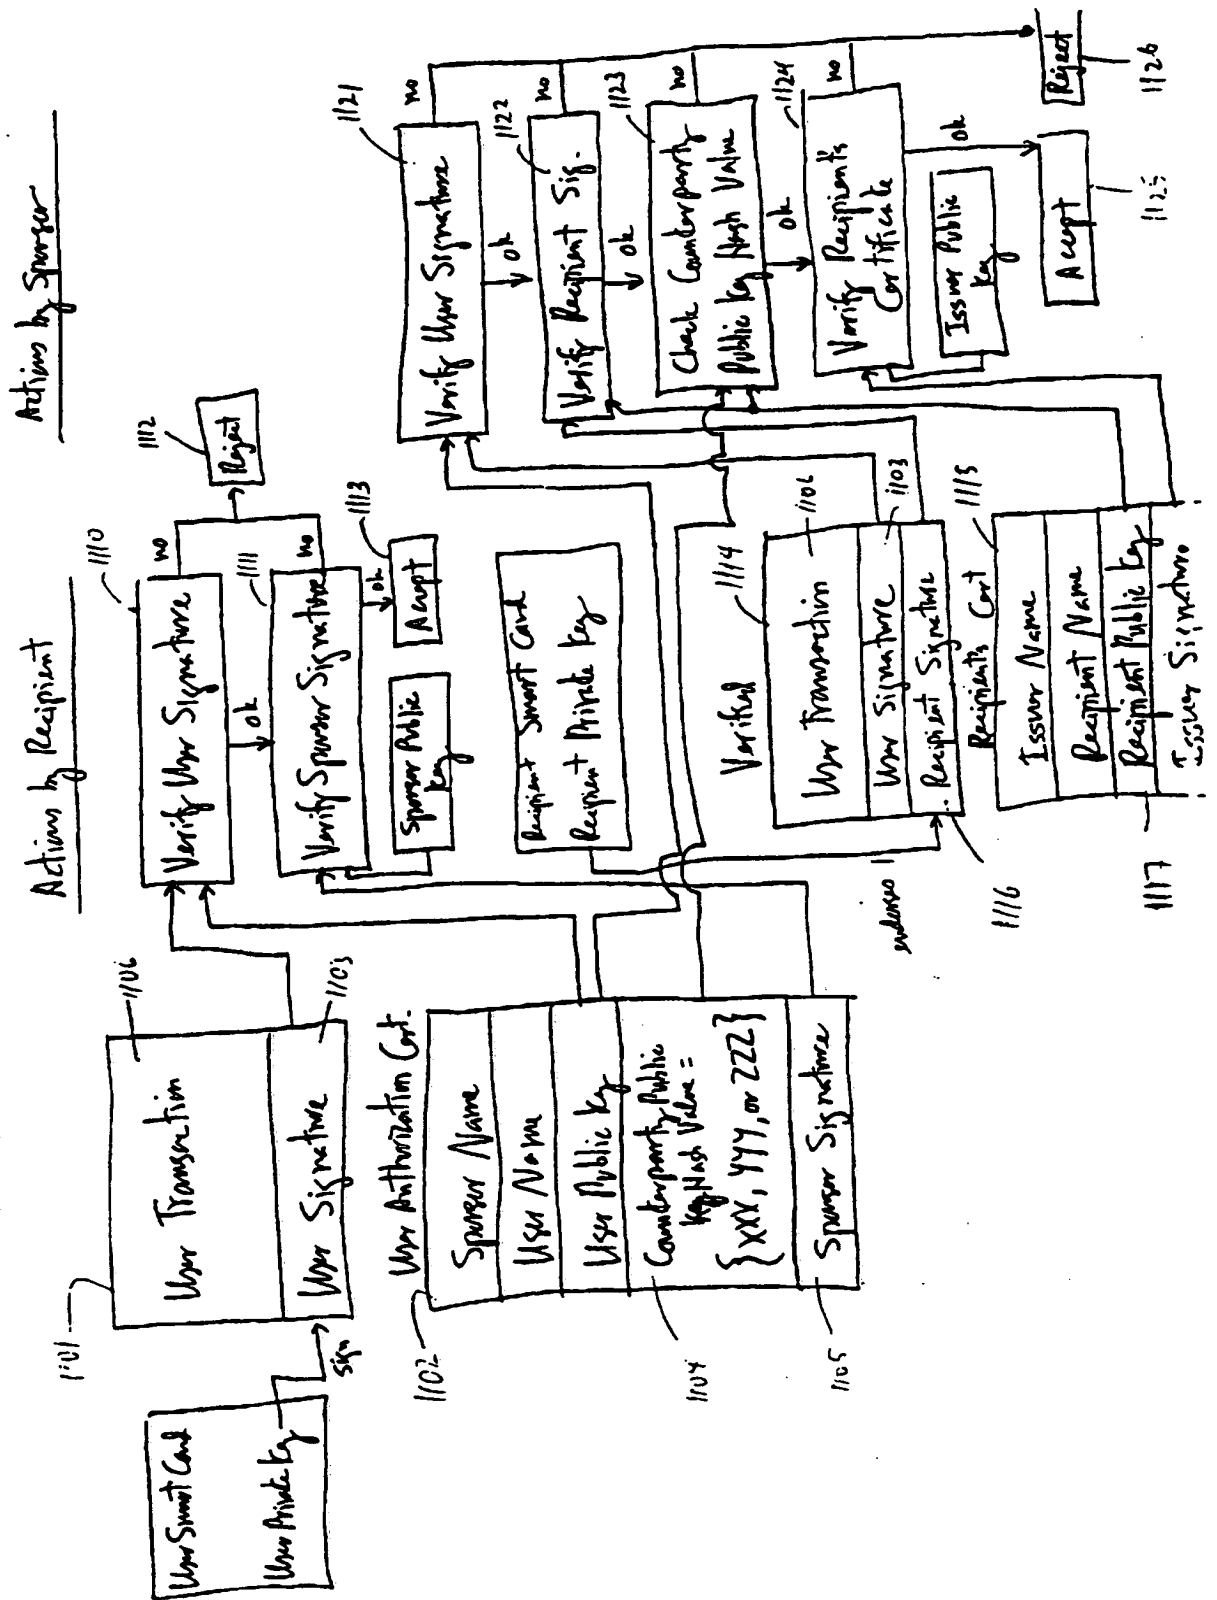 Actions by Recipient
Actions by Sponsor
User Smart Card
User Private Key
sign
1101
User Transaction
1106
User Signature
1103
User Authorization Cert.
1102
Sponsor Name
User Name
User Public Key
Counterparty Public
Key Hash Value =
{XXX, YYY, or ZZZ}
1104
Sponsor Signature
1105
1110
Verify User Signature
no
ok
1111
Verify Sponsor Signature
no
ok
1112
Reject
1113
Accept
Sponsor Public
Key
Recipient Smart Card
Recipient Private Key
endorses
1114
Verified
User Transaction
1106
User Signature
1103
Recipient Signature
1116
Recipients Cert
1115
Issuer Name
Recipient Name
Recipient Public Key
Issuer Signature
1117
1121
Verify User Signature
no
ok
1122
Verify Recipient Sig.
no
ok
1123
Check Counterparty
Public Key Hash Value
no
ok
1124
Verify Recipient's
Certificate
no
ok
Issuer Public
Key
Accept
1125
Reject
1126